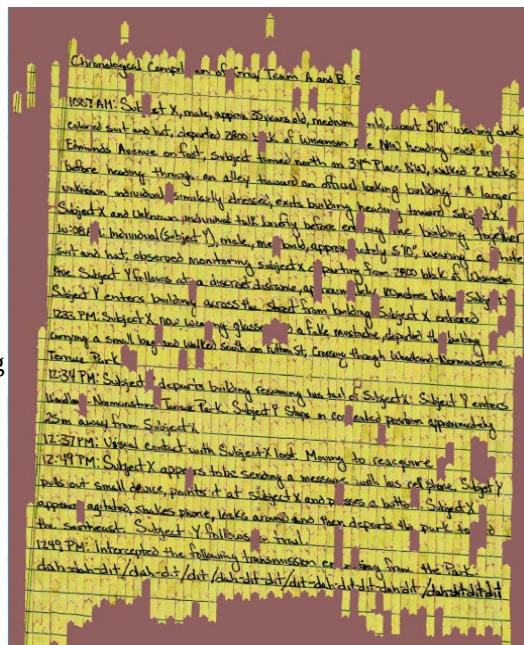 Chronological Compil on of Grey Team A and B S
10:07 AM: Sub ect X, male, approx 35 years old, medium ild, about 5'10" wearing dark
colored suit and hat, departed 2800 b k of Wisconsin Ave NW heading east on
Edmunds Avenue on foot, subject turned north on 34th Place NW, walked 2 blocks
before heading through an alley toward an official looking building. A larger
unknown individual similarly dressed, exits building heading toward subject X.
Subject X and unknown individual talk briefly before entering the building together
Individual (Subject Y), male, me build, approx tely 5'10", wearing a white
suit and hat, observed monitoring subject X parting from 2800 blk of Wisconsin
Ave. Subject Y follows at a discreet distance, behind Subject
Subject Y enters building across the street from building Subject X entered
12:33 PM: Subject X now wearing glasses a fake mustache, departed the building
carrying a small bag and walked south on Fulton St, Crossing through Woodland-Normanstone
Terrace Park
12:34 PM: Subject departs building resuming his tail of Subject X. Subject Y enters
Woodland Normanstone Terrace Park. Subject Y Stops in concealed position approximately
25m away from Subject X
12:37 PM: Visual contact with Subject X lost. Moving to reacquire
12:49 PM: Subject X appears to be sending a message with his cell phone, Subject Y
pulls out small device, points it at subject X and presses a button. Subject X
appears agitated, shakes phone, looks around and then departs the park to d
the southeast. Subject Y follows trail.
12:49 PM: Intercepted the following transmission emanating from the Park:
dah-dah-dit/dah-dit/dit/dah-dit-dit/dit-dah-dit-dit-dah-dit/dah-dit-dit-dit